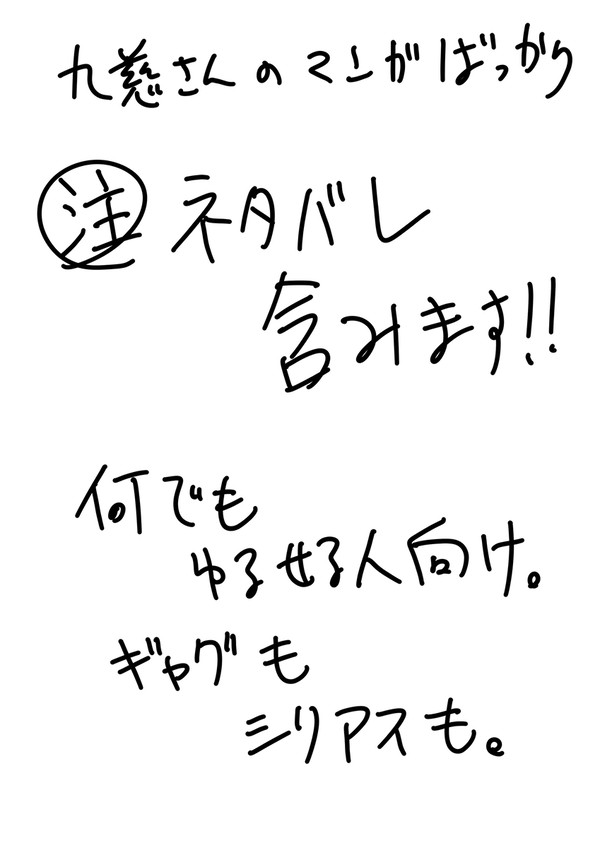 九慈さんのマンガばっかり
注 ネタバレ
含みます!!
何でも
ゆるせる人向け。
ギャグも
シリアスも。